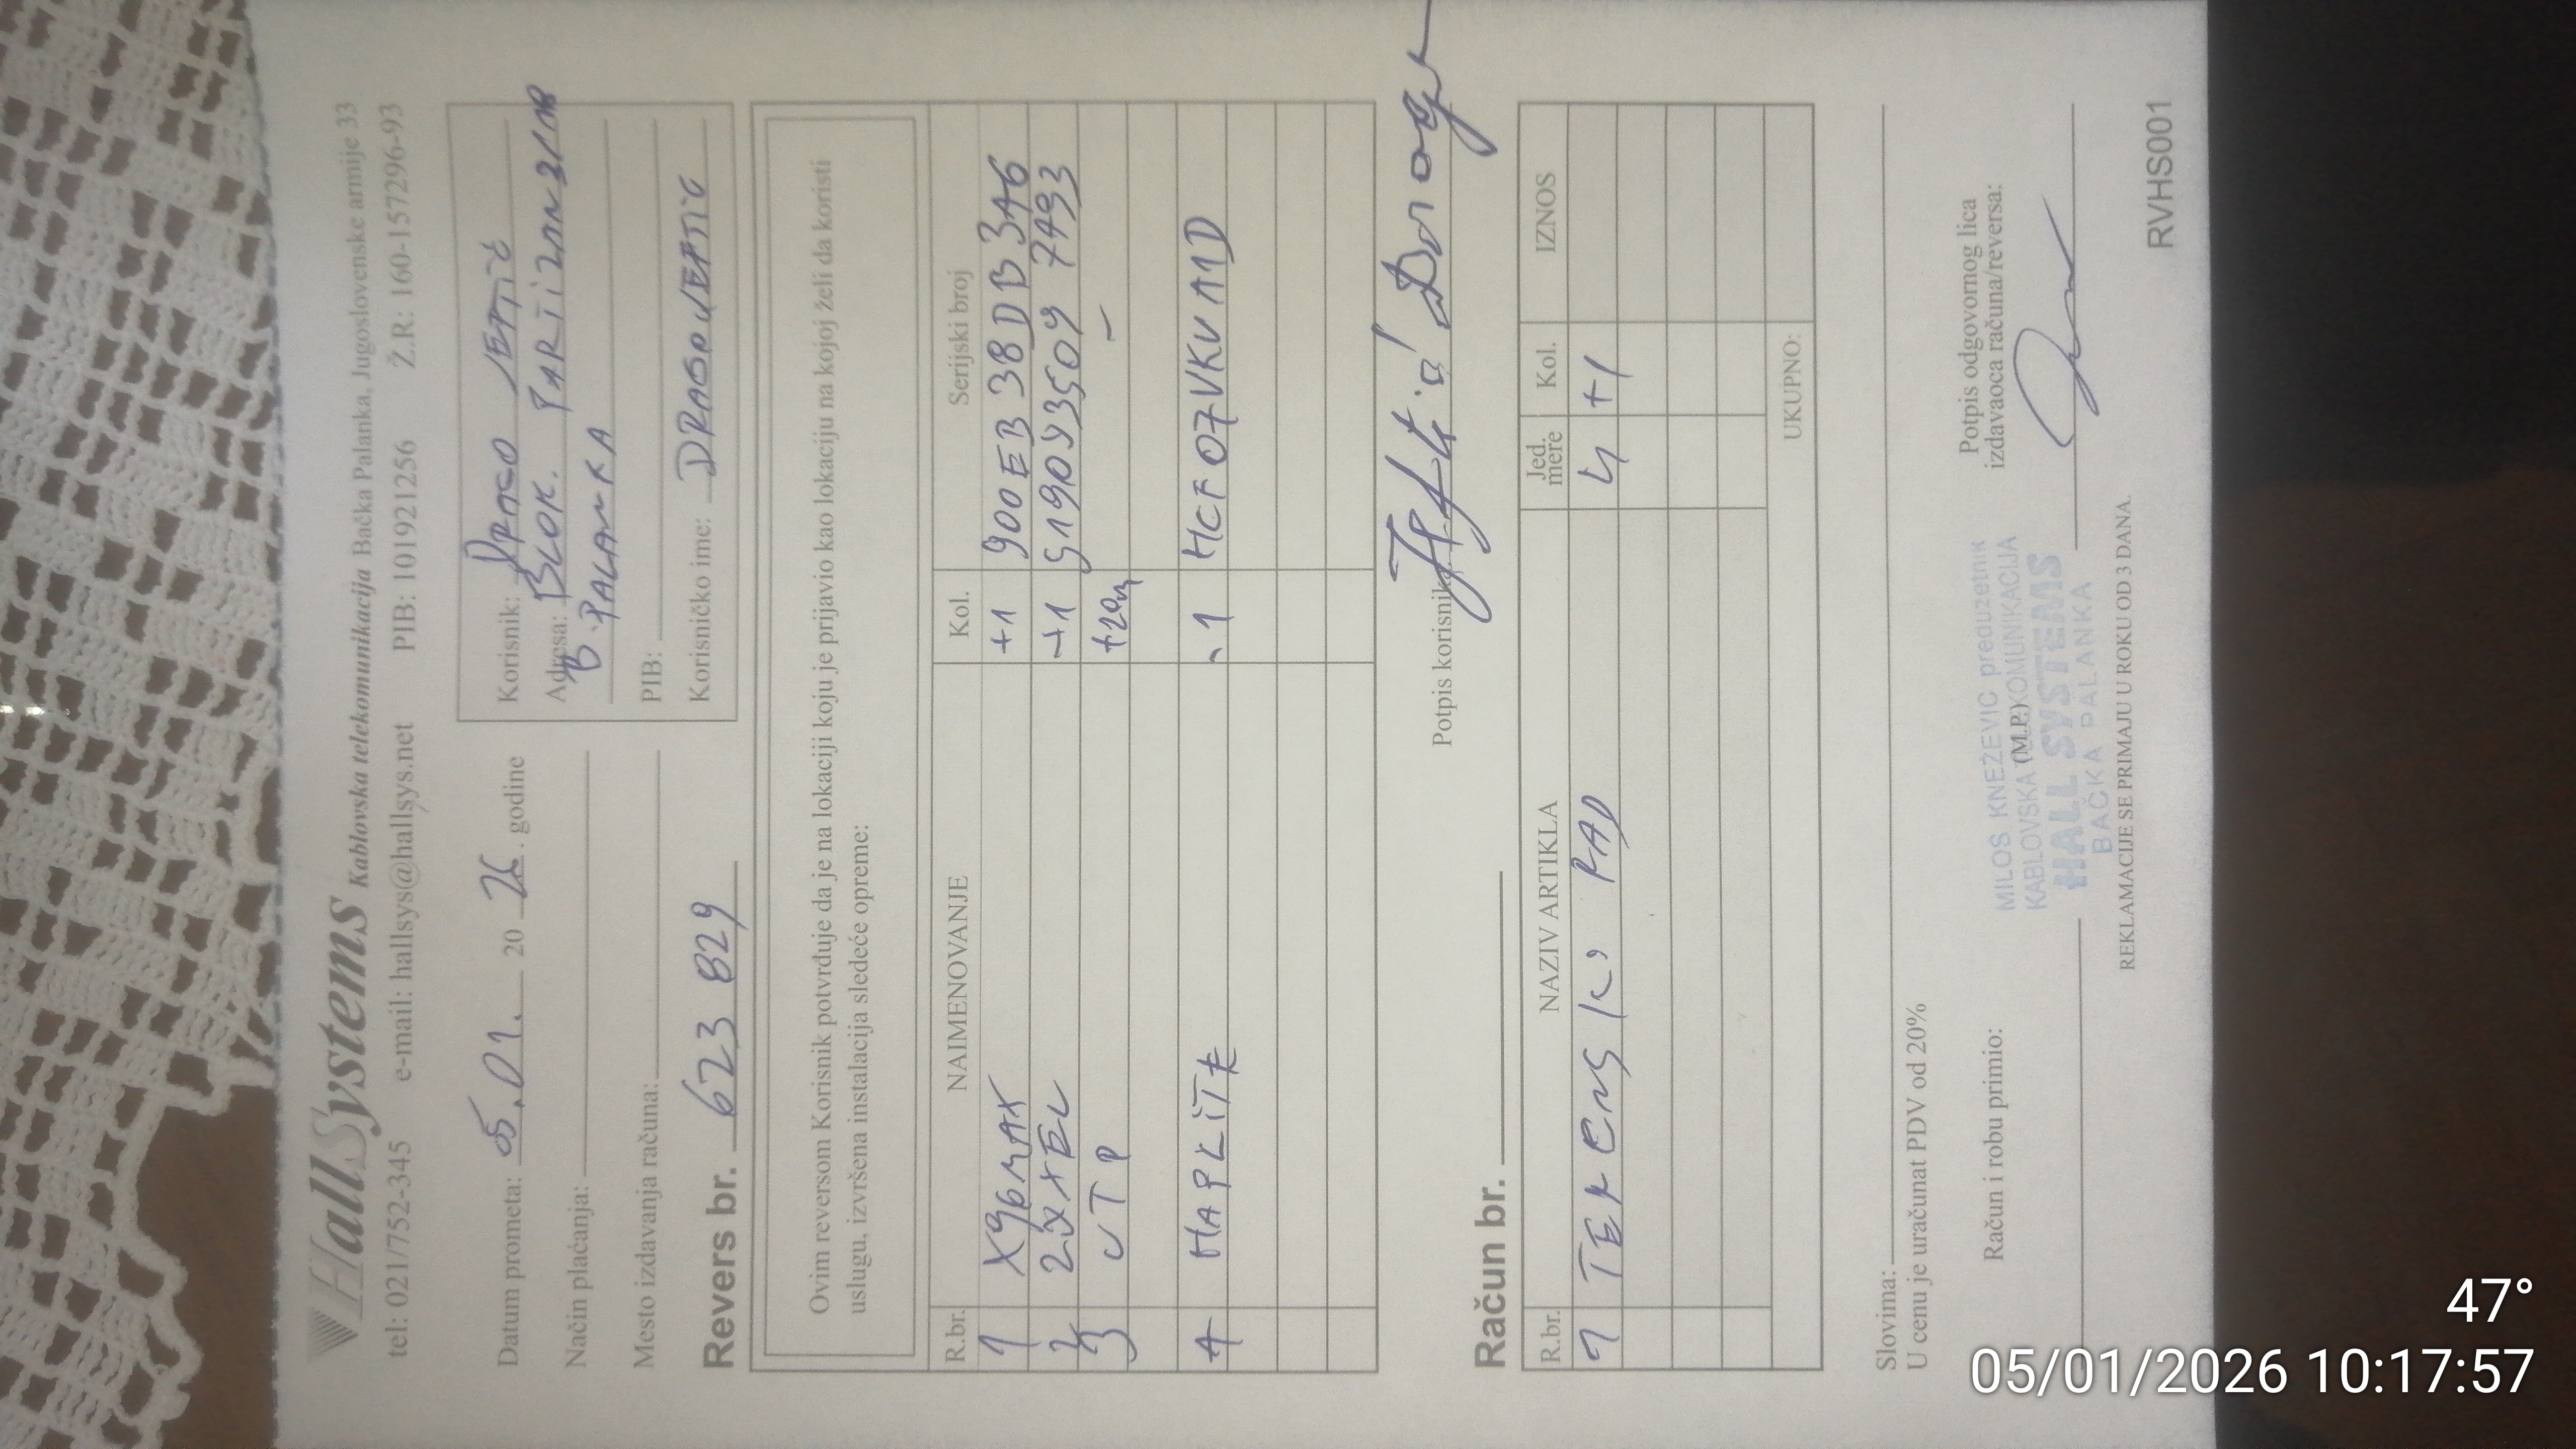 HallSystems Kablovska telekomunikacija Bačka Palanka, Jugoslovenske armije 33
tel: 021/752-345 e-mail: hallsys@hallsys.net PIB: 101921256 Ž.R: 160-157296-93
Datum prometa: 05.01. 20 26. godine
Način plaćanja:
Mesto izdavanja računa:
Revers br. 623 829
Korisnik:
Adresa: BLOK.
B. PALANKA
PIB:
Korisničko ime:
Ovim reversom Korisnik potvrđuje da je na lokaciji koju je prijavio kao lokaciju na kojoj želi da koristi
uslugu, izvršena instalacija sledeće opreme:
R.br. NAIMENOVANJE Kol. Serijski broj
1 X96MAX +1 900EB38DDB3A6
2 +1
3 UTP +20m -
4 HAPLITE -1 HCF07VKVA1D
Potpis korisnika
Račun br.
R.br. NAZIV ARTIKLA Jed. mere Kol. IZNOS
1 TERENSKI RAD Ч +1
UKUPNO:
Slovima:
U cenu je uračunat PDV od 20%
Račun i robu primio:
(M.P.)
MILOS KNEZEVIC preduzetnik
KABLOVSKA KOMUNIKACIJA
HALL SYSTEMS
BAČKA PALANKA
Potpis odgovornog lica
izdavaoca računa/reversa:
REKLAMACIJE SE PRIMAJU U ROKU OD 3 DANA.
RVHS001
47°
05/01/2026 10:17:57